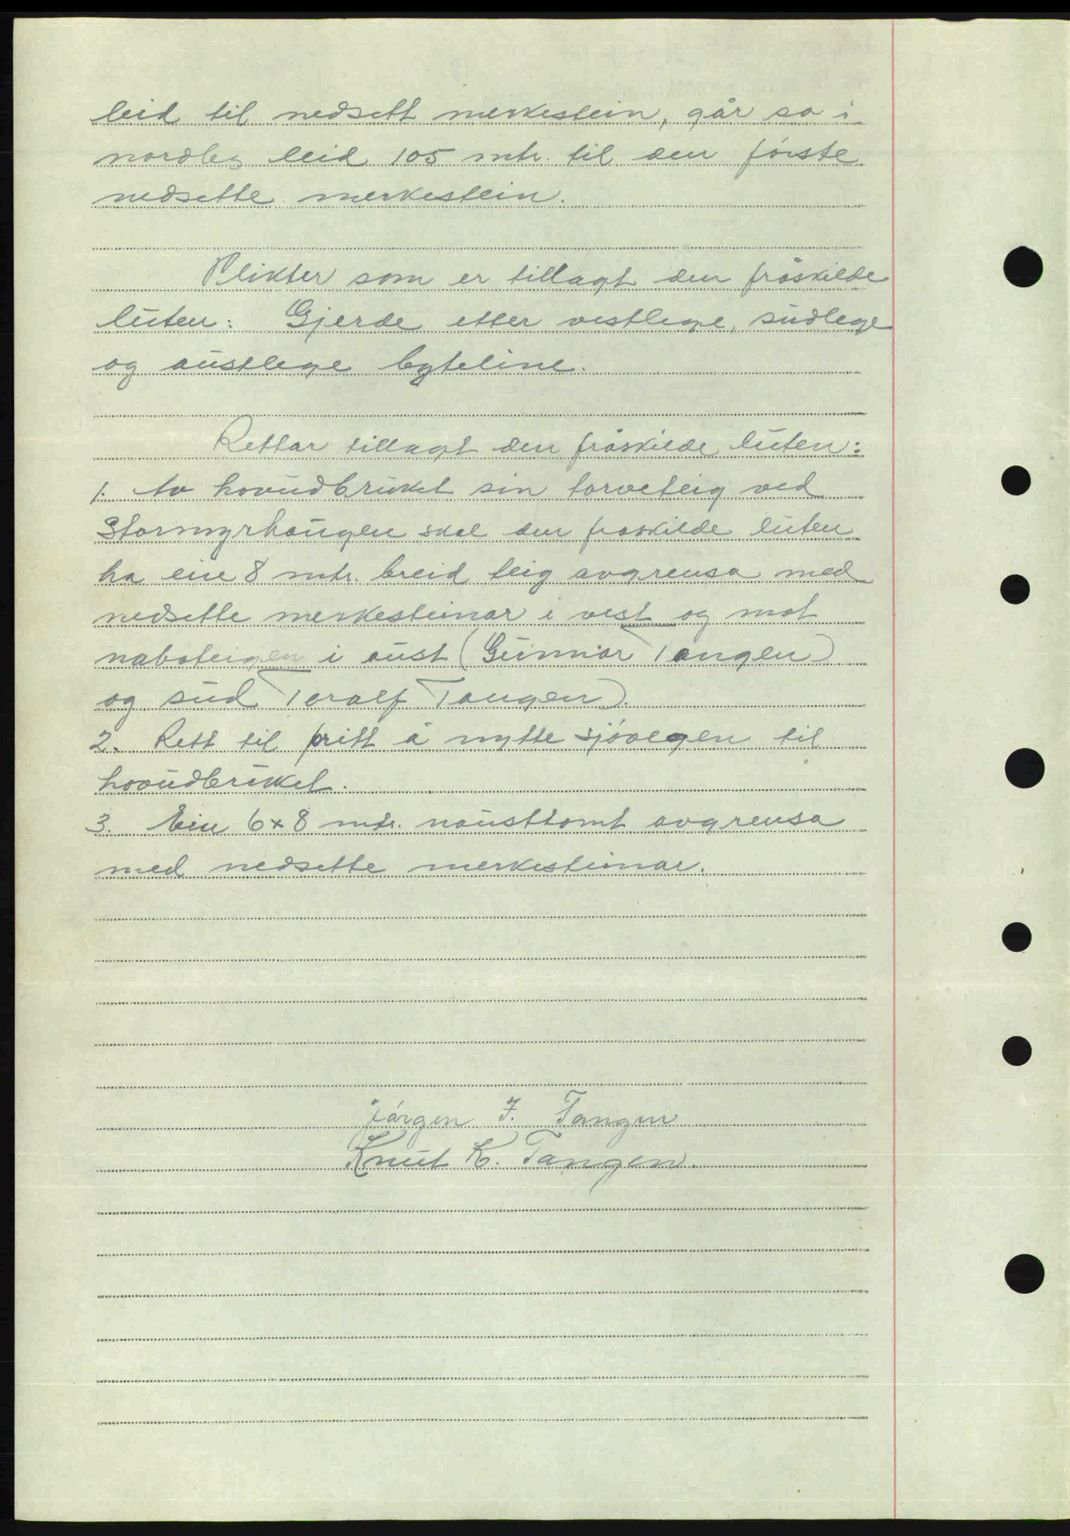 leid til nedsett merkestein, går so i
nordleg leid 105 mtr. til den förste
nedsette merkestein.
Plikter som er tillagt den fråskilde
luten: Gjerde etter vestlege, sudlege
og austlege byteline.
Rettar tillagt den fråskilde luten:
1. Av hovudbruket sin torvteig ved
Stormyrhaugen skal den fraskilde luten
ha ein 8 mtr. breid teig avgrensa med
nedsette merkesteinar i vest og mot
naboteigen i aust (Gunnar Tangen)
og sud Toralf Tangen).
2. Rett til fritt å nytte sjövegen til
hovudbruket.
3. Ein 6x8 mtr. nausttomt avgrensa
med nedsette merkesteinar.
Jörgen J. Tangen
Knut K. Tangen.